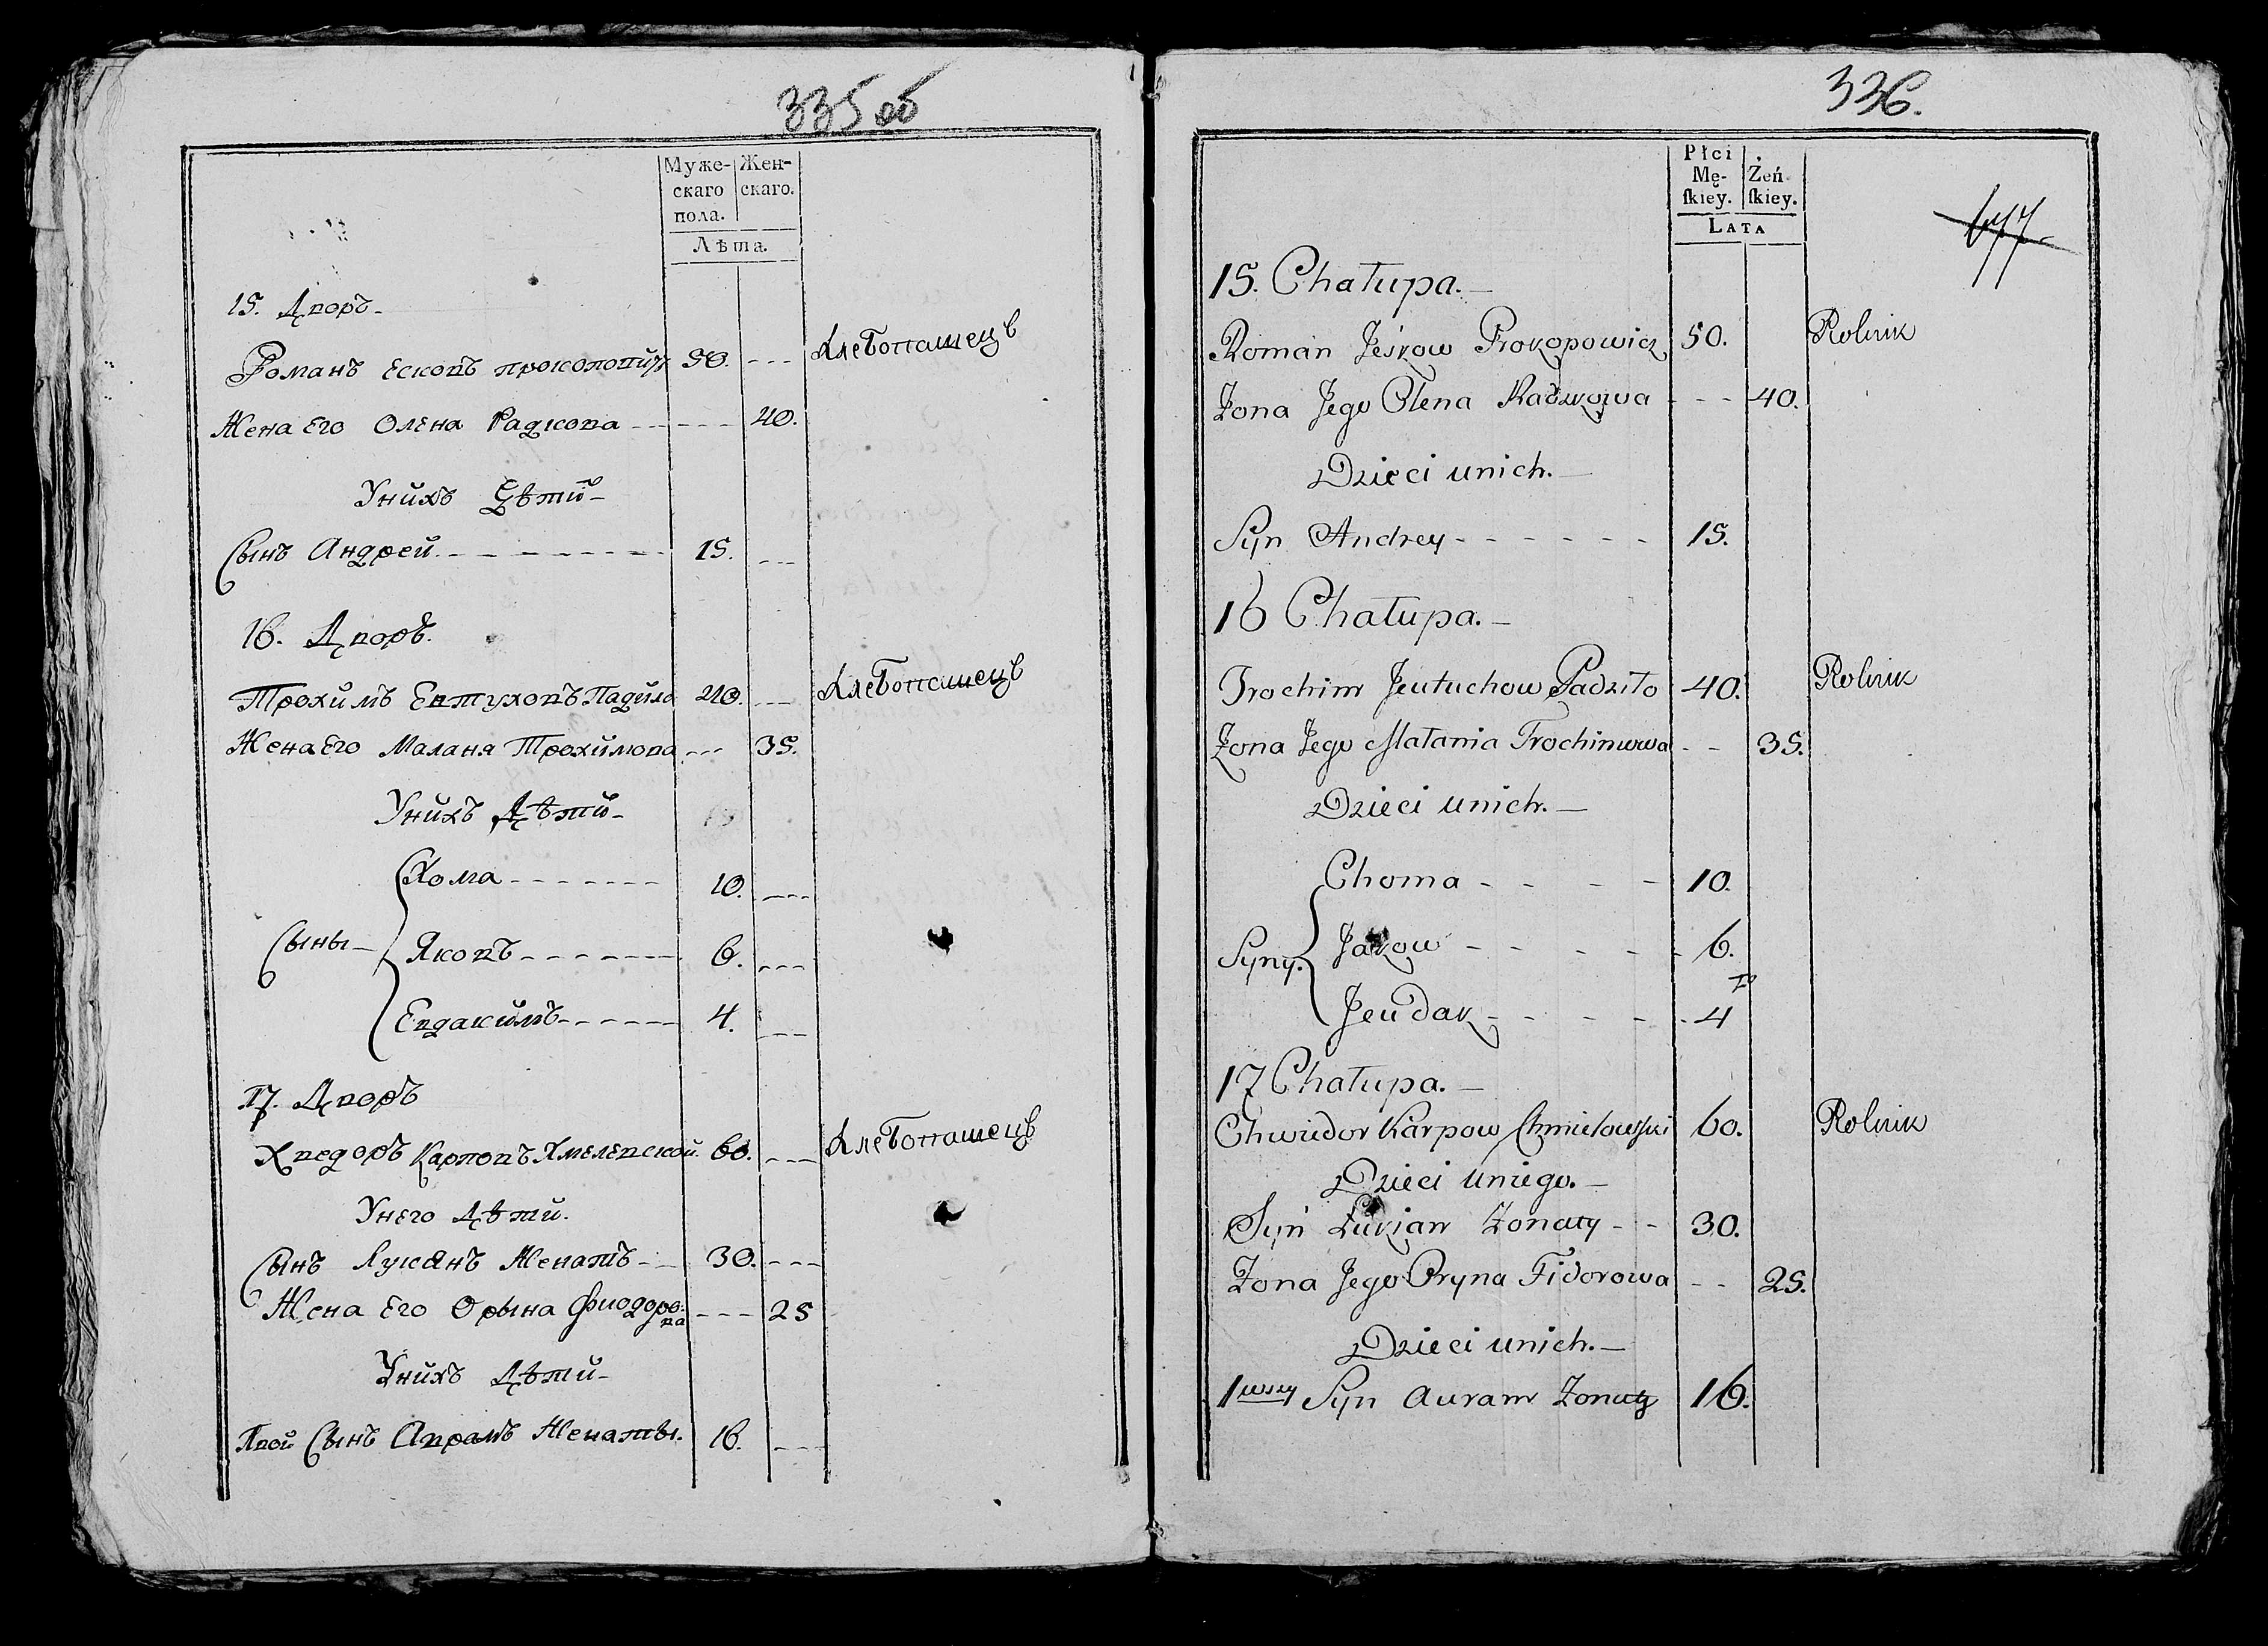 335 об
Муже-
скаго
пола.
Жен-
скаго.
Лѣта.
15. Дворъ.
Романъ Есковъ прокоповичъ 50. Хлебопашецъ
Жена Его Олена Радкова 40.
Унихъ Дѣти
Сынъ Андрей 15.
16. Дворъ.
Трохимъ Евтуховъ Падило 40. Хлебопашецъ
Жена Его Маланя Трохимова 35.
Унихъ Дѣти
Хома 10.
Сыны Яковъ 6.
Евдакимъ 4.
17. Дворъ
Хведоръ Карповъ Хмелевской. 60. Хлебопашецъ
Унего Дѣти.
Сынъ Лукянъ Женатъ 30.
Жена Его Орына Фиодорова 25
Унихъ Дѣти
Сынъ Аврамъ Женаты. 16.
336.
Płci
Mę-
ſkiey.
Żeń-
ſkiey.
LATA
677
15. Chałupa.
Roman Jeśkow Prokopowicz 50. Rolnik
Zona Jego Ołena Radkowa 40.
Dzieci unich.
Syn Andrey 15.
16 Chałupa.
Trochim Jeutuchow Padziło 40. Rolnik
Zona Jego Małania Trochimowa 35.
Dzieci unich.
Choma 10.
Syny. Jakow 6.
Jeudak 4
17 Chałupa.
Chwiedor Karpow Chmielowski 60. Rolnik
Dzieci uniego.
Syn Łukjan Zonaty 30.
Zona Jego Oryna Fidorowa 25.
Dzieci unich.
1wszy Syn Auram Zonaty 16.